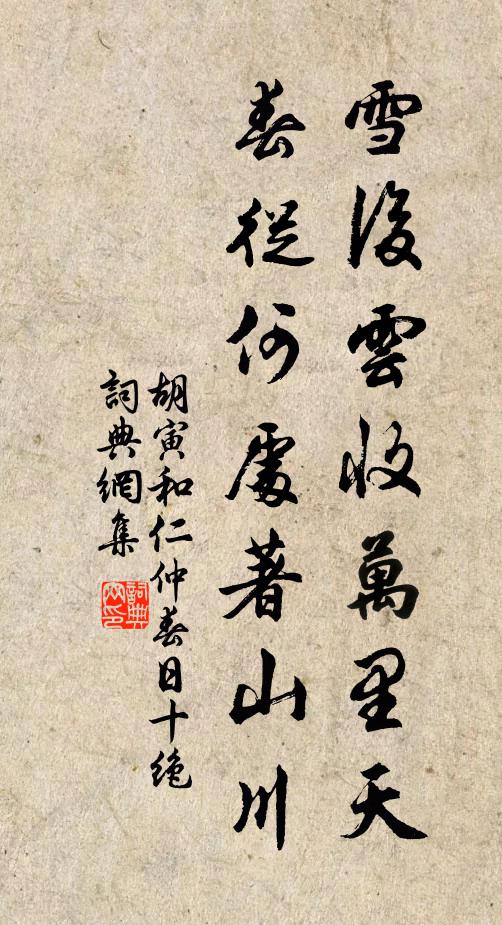 雪後雲收萬里天
春從何處著山川
胡寅和仁仲春日十絶
詞典網集
詞典
网印